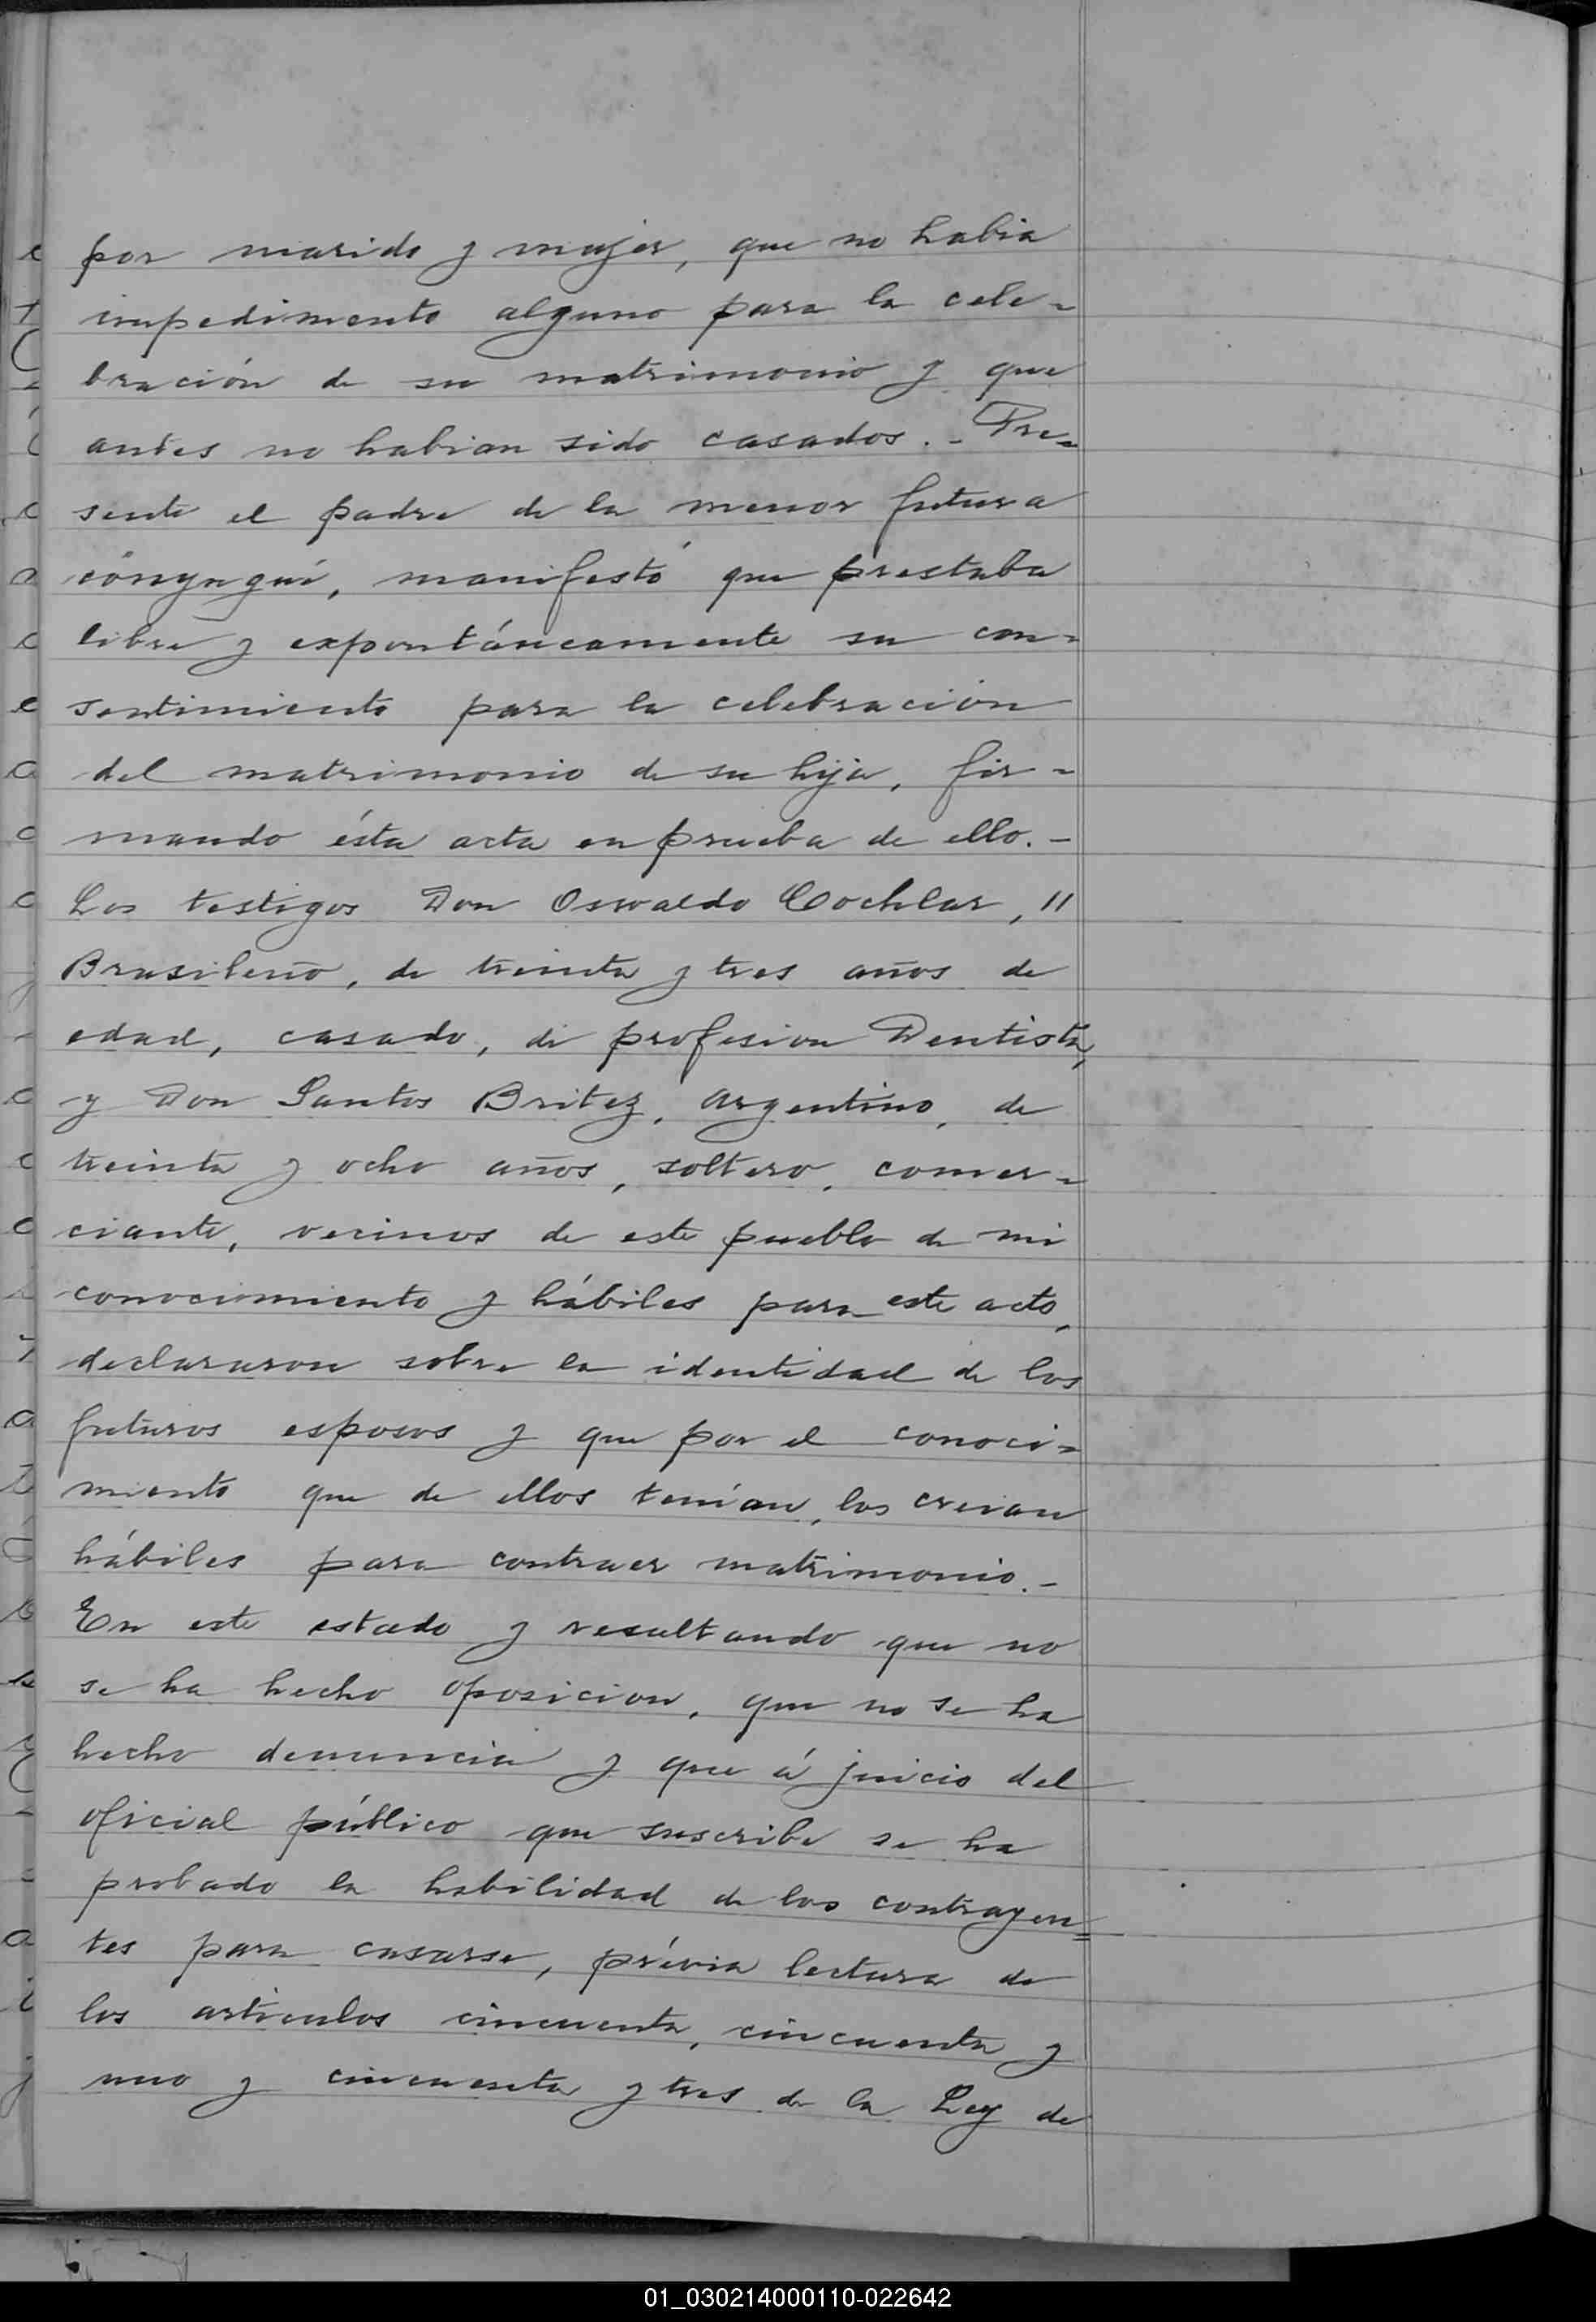 por marido y mujer, que no habia
impedimento alguno para la cele-
bración de su matrimonio y que
antes no habian sido casados. - Pre-
sente el padre de la menor futura
cónyugué, manifestó que prestaba
libre y expontáneamente su con-
sentimiento para la celebración
del matrimonio de su hija, fir-
mando ésta acta en prueba de ello. -
Los testigos Don Oswaldo Cochlar, "
Brasileño, de treinta y tres años de
edad, casado, de profesion Dentista,
y Don Santos Britez, argentino, de
treinta y ocho años, soltero, comer-
ciante, vecinos de este pueblo de mi
conocimiento y hábiles para este acto,
declararon sobre la identidad de los
futuros esposos y que por el conoci-
miento que de ellos tenían, los creian
hábiles para contraer matrimonio. -
En este estado y resultando que no
se ha hecho oposicion, que no se ha
hecho denuncia y que á juicio del
oficial público que suscribe se ha
probado la habilidad de los contrayen=
tes para casarse, prévia lectura de
los articulos cincuenta, cincuenta y
uno y cincuenta y tres de la Ley de
01_030214000110-022642